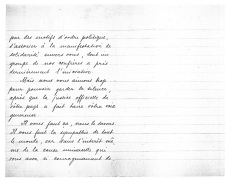 par des motifs d'ordre politique,
s'associer à la manifestation de
solidarité envers vous, dont un
groupe de nos confrères a pris
dernièrement l'initiative.
Mais nous vous aimons trop
pour pouvoir garder le silence,
après que la justice officielle de
votre pays a fait taire votre voix
généreuse.
Il vous faut et, nous le savons,
il vous faut la sympathie de tout
le monde, car dans l'intérêt
de la cause universelle que
vous avez si courageusement